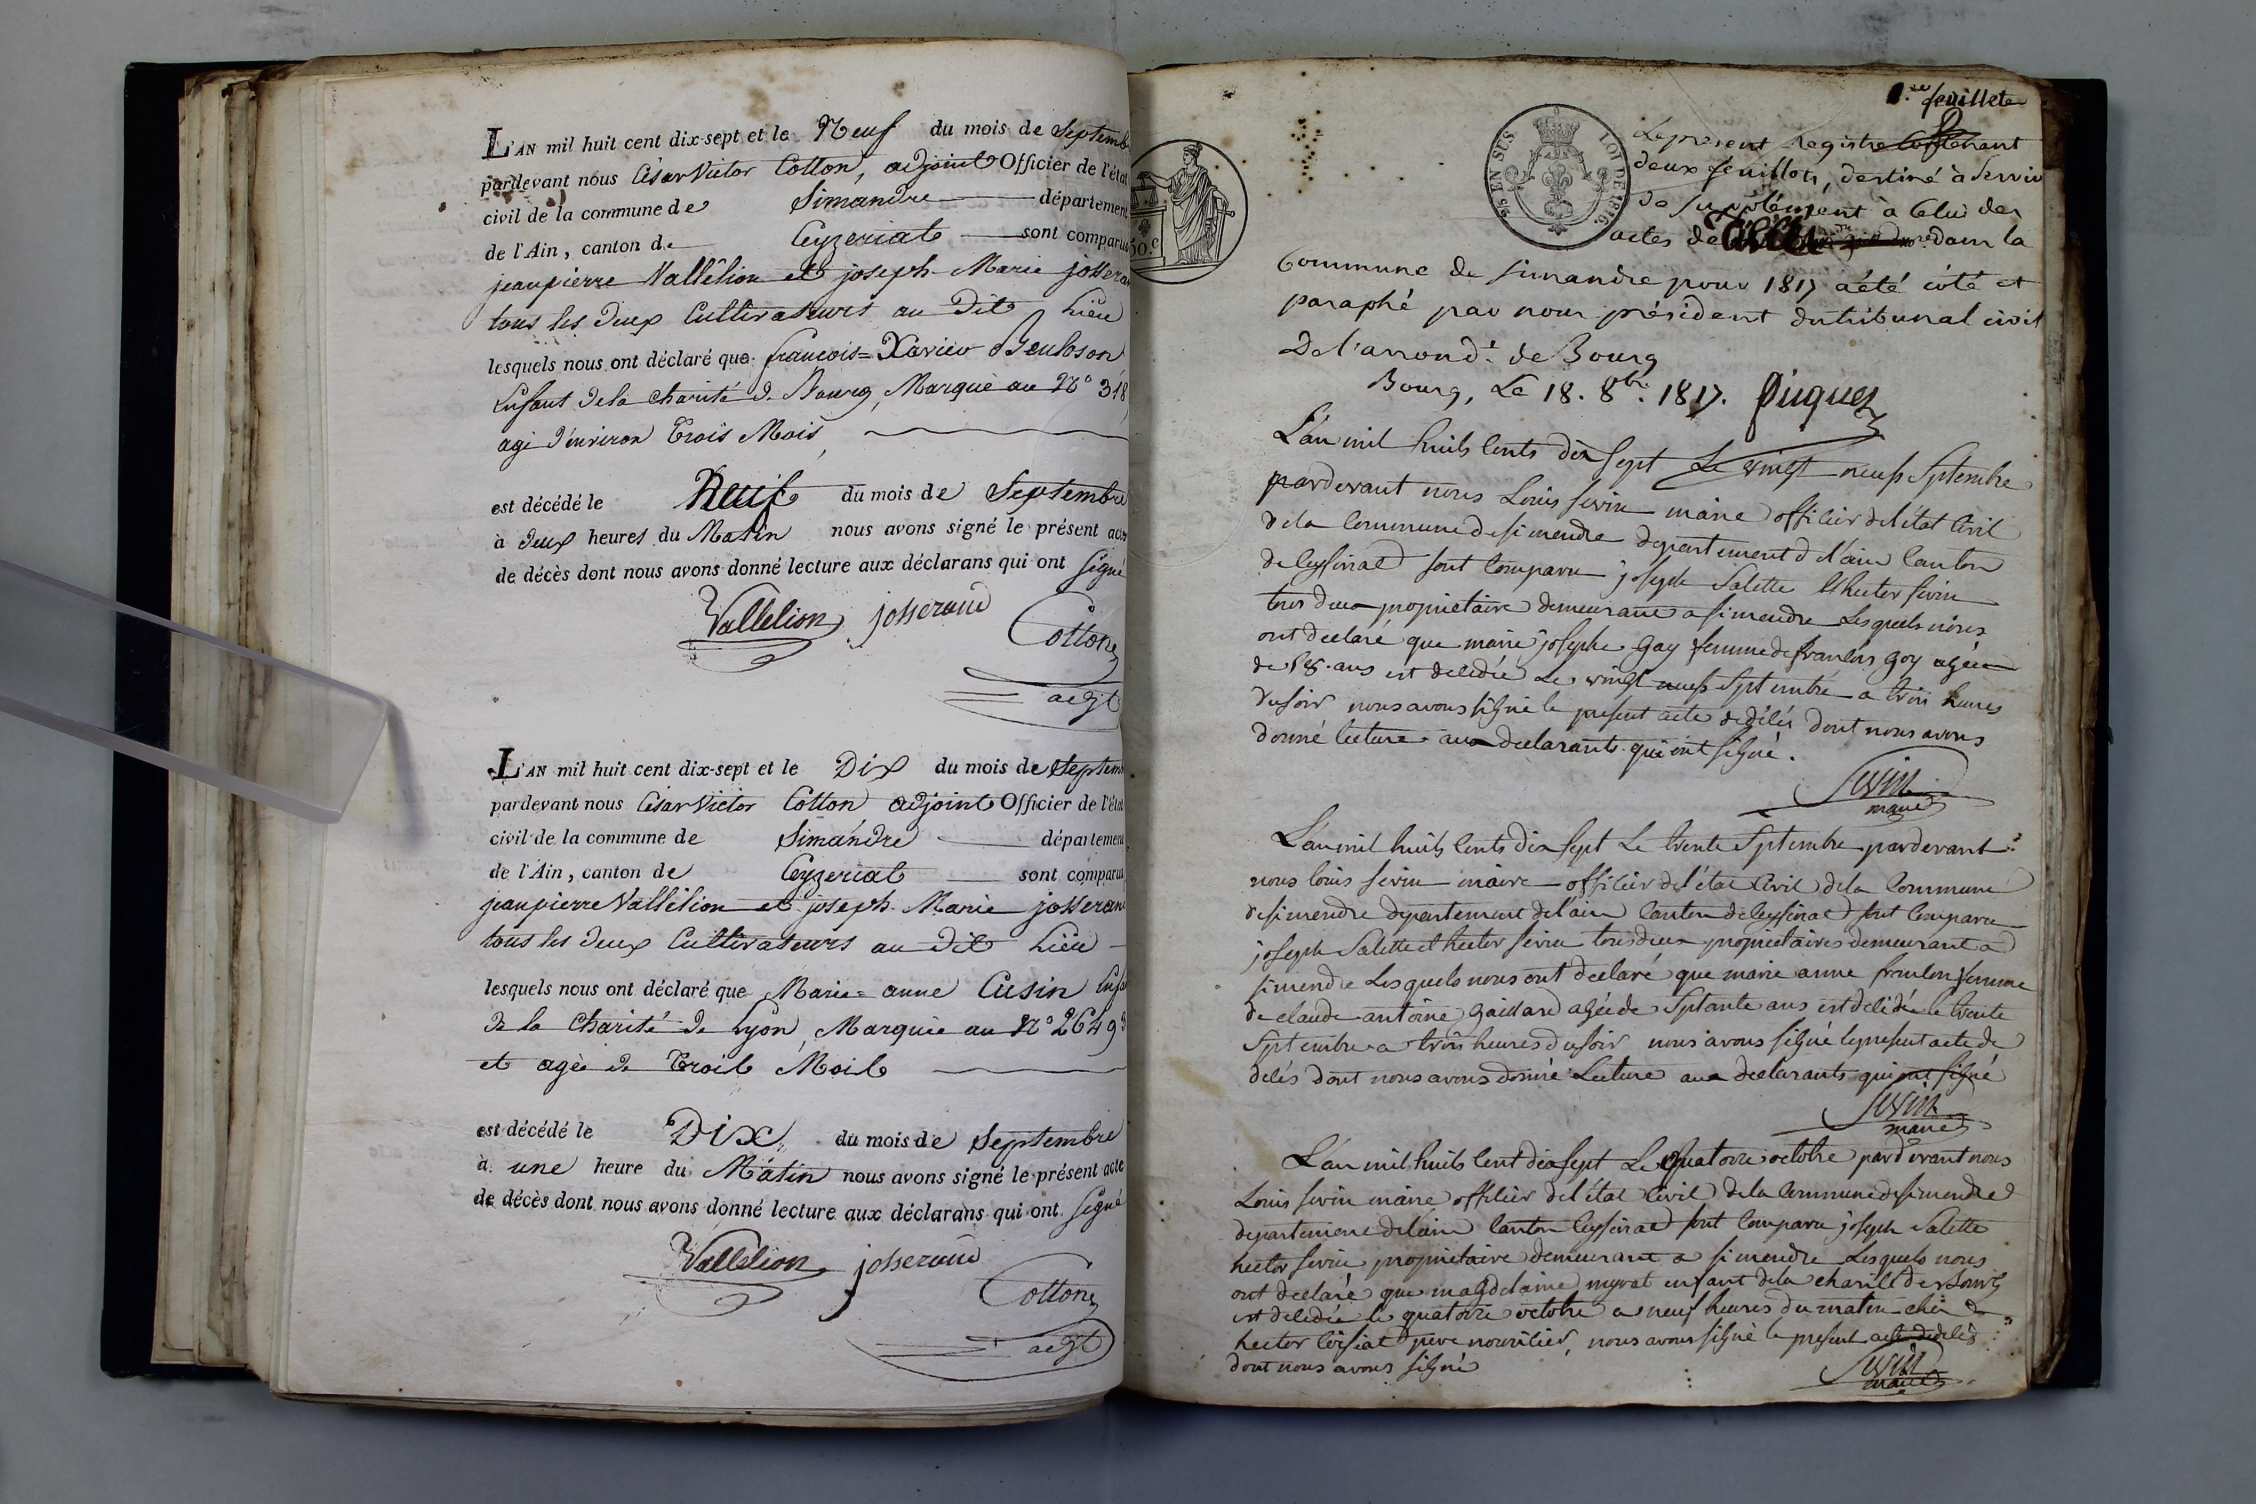 L'AN mil huit cent dix-sept et le Neuf du mois de Septemb
pardevant nous César Victor Cotton, adjoint Officier de l'état
civil de la commune de Simandre département
de l'Ain, canton de Ceyzeriat sont comparus
jeanpierre Vallélion et joseph Marie josseran
tous les deux Cultivateurs au Dit Lieu
lesquels nous ont déclaré que francois=Xavier
Enfant de la charité de Bourg, Marqué au N° 318
agé d'environ Trois Mois,
est décédé le Neuf du mois de Septembre
à deux heures du Matin nous avons signé le présent acte
de décès dont nous avons donné lecture aux déclarans qui ont signé
Vallélion josserand Cotton
adjt
L'AN mil huit cent dix-sept et le Dix du mois de Septem
pardevant nous César Victor Cotton adjoint Officier de l'état
civil de la commune de Simandre département
de l'Ain, canton de Ceyzeriat sont comparus
jeanpierre Vallélion et joseph Marie josseran
tous les deux Cultivateurs au Dit Lieu
lesquels nous ont déclaré que Marie=anne Cusin Enfa
de la Charité de Lyon, Marquée au N° 2649
et agée de Trois Mois
est décédé le Dix du mois de Septembre
à une heure du Matin nous avons signé le présent acte
de décès dont nous avons donné lecture aux déclarans qui ont signé
Vallélion josserand
Cotton
adjt
1.er feuillet
EN SUS LOI DE 1816.
50.c
Le présent Registre Contenant
deux feuillets, destiné à Servir
de Supplément à Celui des
actes de Décès dans la
Commune de Simandre pour 1817 a été coté et
paraphé par nous président du tribunal civil
De l'arrond.t de Bourg
Bourg, Le 18. 8bre. 1817. Piquet
L'an mil huits cents dix sept Le vingt neuf Septembre
pardevant nous Louis sevin maire officier de l'état Civil
de la Commune de simendre departement de l'ain Canton
de Ceyseriat sont Comparu joseph Salette et hector sevin
tous deux propriétaire demeurant a simendre Lesquels nous
ont declaré que marie josephe Gay femme de francois Goy agée
de ans est decedée Le vingt neuf Septembre a trois heures
du soir nous avons signé le present acte de décés dont nous avons
donné lecture aux declarants qui ont signé.
Sevin
maire
L'an mil huits cents dix sept Le trente Septembre pardevant
nous louis sevin maire officier de l'état Civil de la Commune
de simendre departement de l'ain Canton de Ceyseriat sont Comparu
joseph Salette et hector sevin tous deux propriétaires demeurant a
simendre Lesquels nous ont declaré que marie anne femme
de claude antoine Gaillard agée de Septante ans est decedée le trente
Septembre a trois heures du soir nous avons signé le present acte de
décés dont nous avons donné Lecture aux declarants qui ont signé
Sevin
maire
L'an mil huits cent dix sept Le quatorze octobre pardevant nous
Louis sevin maire officier de l'état Civil de la Commune de simendre
departement de l'ain Canton Ceyseriat sont Comparu joseph Salette
hector sevin propriétaire demeurant a simendre Lesquels nous
ont declaré que magdelaine myrat enfant de la charité de Bourg
est decedée le quatorze octobre a neuf heures du matin chez
hector pere nouricier, nous avons signé le present acte de décés
dont nous avons signé
Sevin
maire